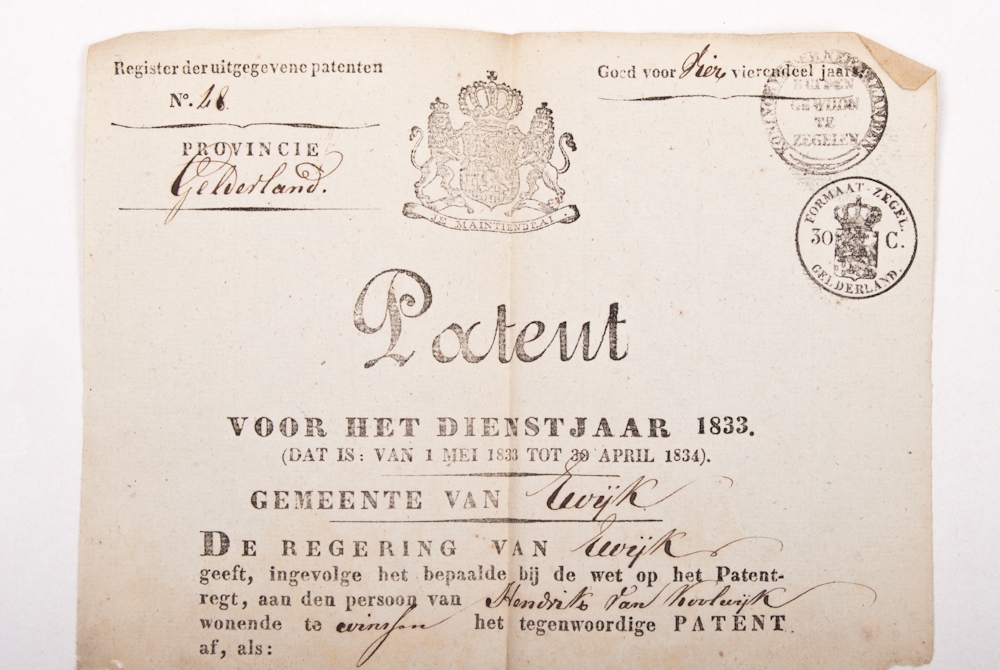 Register der uitgegevene patenten
N°. 28.
PROVINCIE
Gelderland.
JE MAINTIENDRAI
Goed voor Vier vierendeel jaars.
BUITEN
GEWOON
TE
ZEGELEN
FORMAAT-ZEGEL.
30 C.
GELDERLAND.
Patent
VOOR HET DIENSTJAAR 1833.
(DAT IS: VAN 1 MEI 1833 TOT 30 APRIL 1834).
GEMEENTE VAN Ewijk
DE REGERING VAN Ewijk
geeft, ingevolge het bepaalde bij de wet op het Patent-
regt, aan den persoon van Hendrik van Koolwijk
wonende te winssen het tegenwoordige PATENT
af, als: